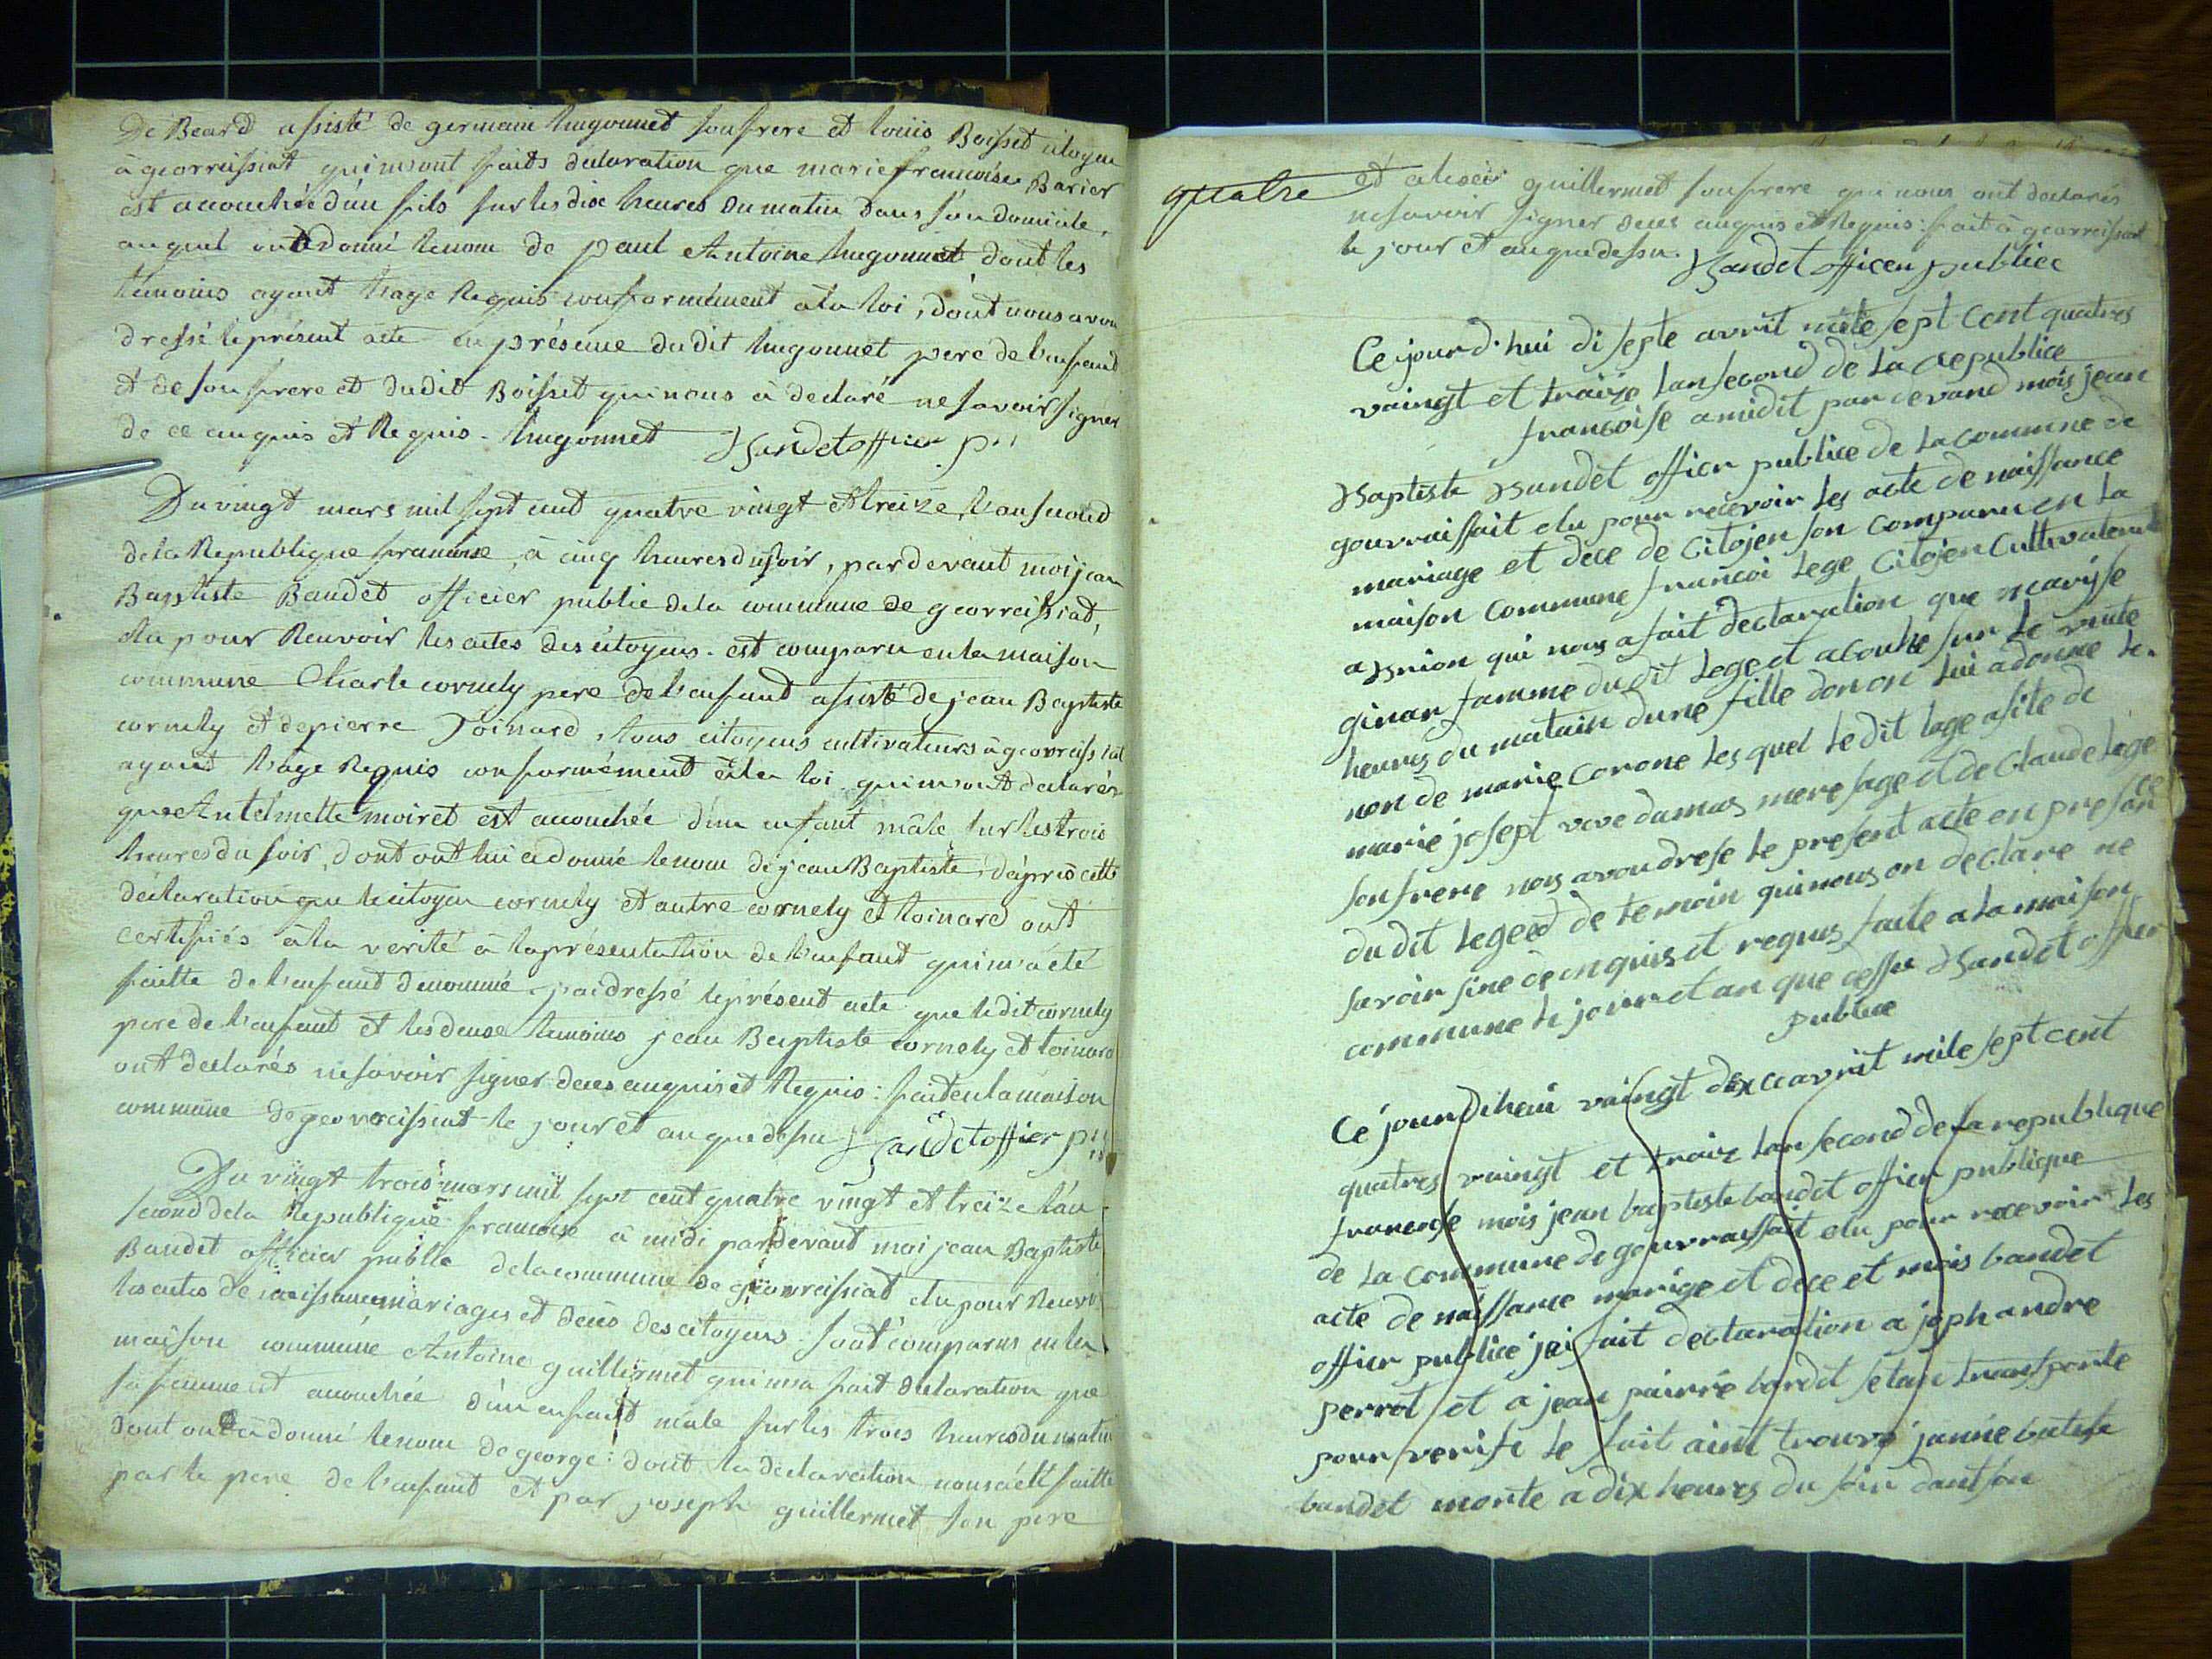 De Beard assisté de germain hugonnet son frere et loüis Boisset citoyen
à georreissiat qui m'ont faits declaration que marie francoise Barier
est accouchée d'un fils sur les dix heures du matin dans son domicile,
auquel ont donné le nom de paul Antoine hugonnet dont les
témoins ayant l'age Requis conformément à la loi, dont nous avon
dressé le présent acte en présence dudit hugonnet pere de l'enfant
et de son frere et dudit Boisset qui nous à declaré ne savoir signer
de ce enquis et Requis. hugonnet Bandet officier p.
Du vingt mars mil sept cent quatre vingt et treize, l'an second
de la Republique francaise, à cinq heures du soir, pardevant moi jean
Baptiste Baudet officier public de la commune de georreissiat,
élu pour Recevoir les actes des citoyens. est comparu en la maison
commune Charle cornely pere de l'enfant assisté de jean Baptiste
cornely et de pierre Toinard, tous citoyens cultivateurs à georreissiat
ayant l'age Requis conformément à la loi qui m'ont declarés
que Antelmette moiret est accouchée d'un enfant mâle sur les trois
heures du soir, dont ont lui a donné le nom de jean Baptiste, d'après cette
déclaration que le citoyen cornely et autre cornely et Toinard ont
certifiés à la verité à la présentation de l'enfant qui m'a été
faitte de l'enfant denommé. j'ai dressé le présent acte que ledit cornely
pere de l'enfant et les deux temoins jean Baptiste cornely et toinard
ont declarés ne savoir signer de ces enquis et Requis: fait en la maison
commune de georreissiat le jour et an que dessu Baudet offier p
Du vingt trois mars mil sept cent quatre vingt et treize l'an
second de la Republique francaise à midi pardevant moi jean Baptiste
Baudet officier public de la commune de georreissiat élu pour Recevoi
les actes de naissances mariages et décès des citoyens. sont comparus en la
maison commune Antoine guillermet qui m'a fait declaration que
sa femme est accouchée d'un enfant male sur les trois heures du matin
dont on a donné le nom de george: dont la declaration nous a été faitte
par le pere de l'enfant et par joseph guillermet son pere
quatre
et guillermet son frere qui nous ont declarés
ne savoir signer de ces enquis et Requis: fait à georreissiat
le jour et an que dessu. Bandet officer publice
Ce jourd'hui di septe avrit mile sept cent quatres
vaingt et traize l'an second de la republice
francoise a midit par devand mois jean
Baptiste Bandet offier publice de la commune de
gourraissait elu pour recevoir les acte de naissance
mariage et dece de Citojen son comparu en la
maison commune francoi lege Citojen Cultivateur
a Brion qui nous a fait declaration que
ginan famme du dit lege et acouhe sur le
heures du matain dune fille don on lui a donne le
non de marie corone les quel le dit lege asite de
marie josept veve damas mere sage et de Claude lege
son frere nous avon drese le present acte en presance
du dit lege ed de temoin qui nous on declare ne
savoir sine de enquis et requis faite a la maison
commune le jour et an que dessu Bandet offier
publice
Ce jourdihui vaingt dexce avrit mile sept cent
quatres vaingt et traize lan second de la republique
francoise mois jean baptiste bandet offier publique
de la commune de gourraissait elu pour recevoir les
acte de naissance marige et dece et mois bandet
offier publice jei fait declaration a joph andre
perrot et a jean pairre bardet setan transporte
pour verifi le fait aint trouvé janne batiste
bandet morte a dix heures du soir dant son